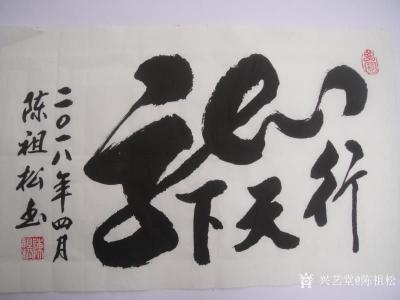 龍行天下
二〇一八年四月
陈祖松书
兴艺堂@陈祖松